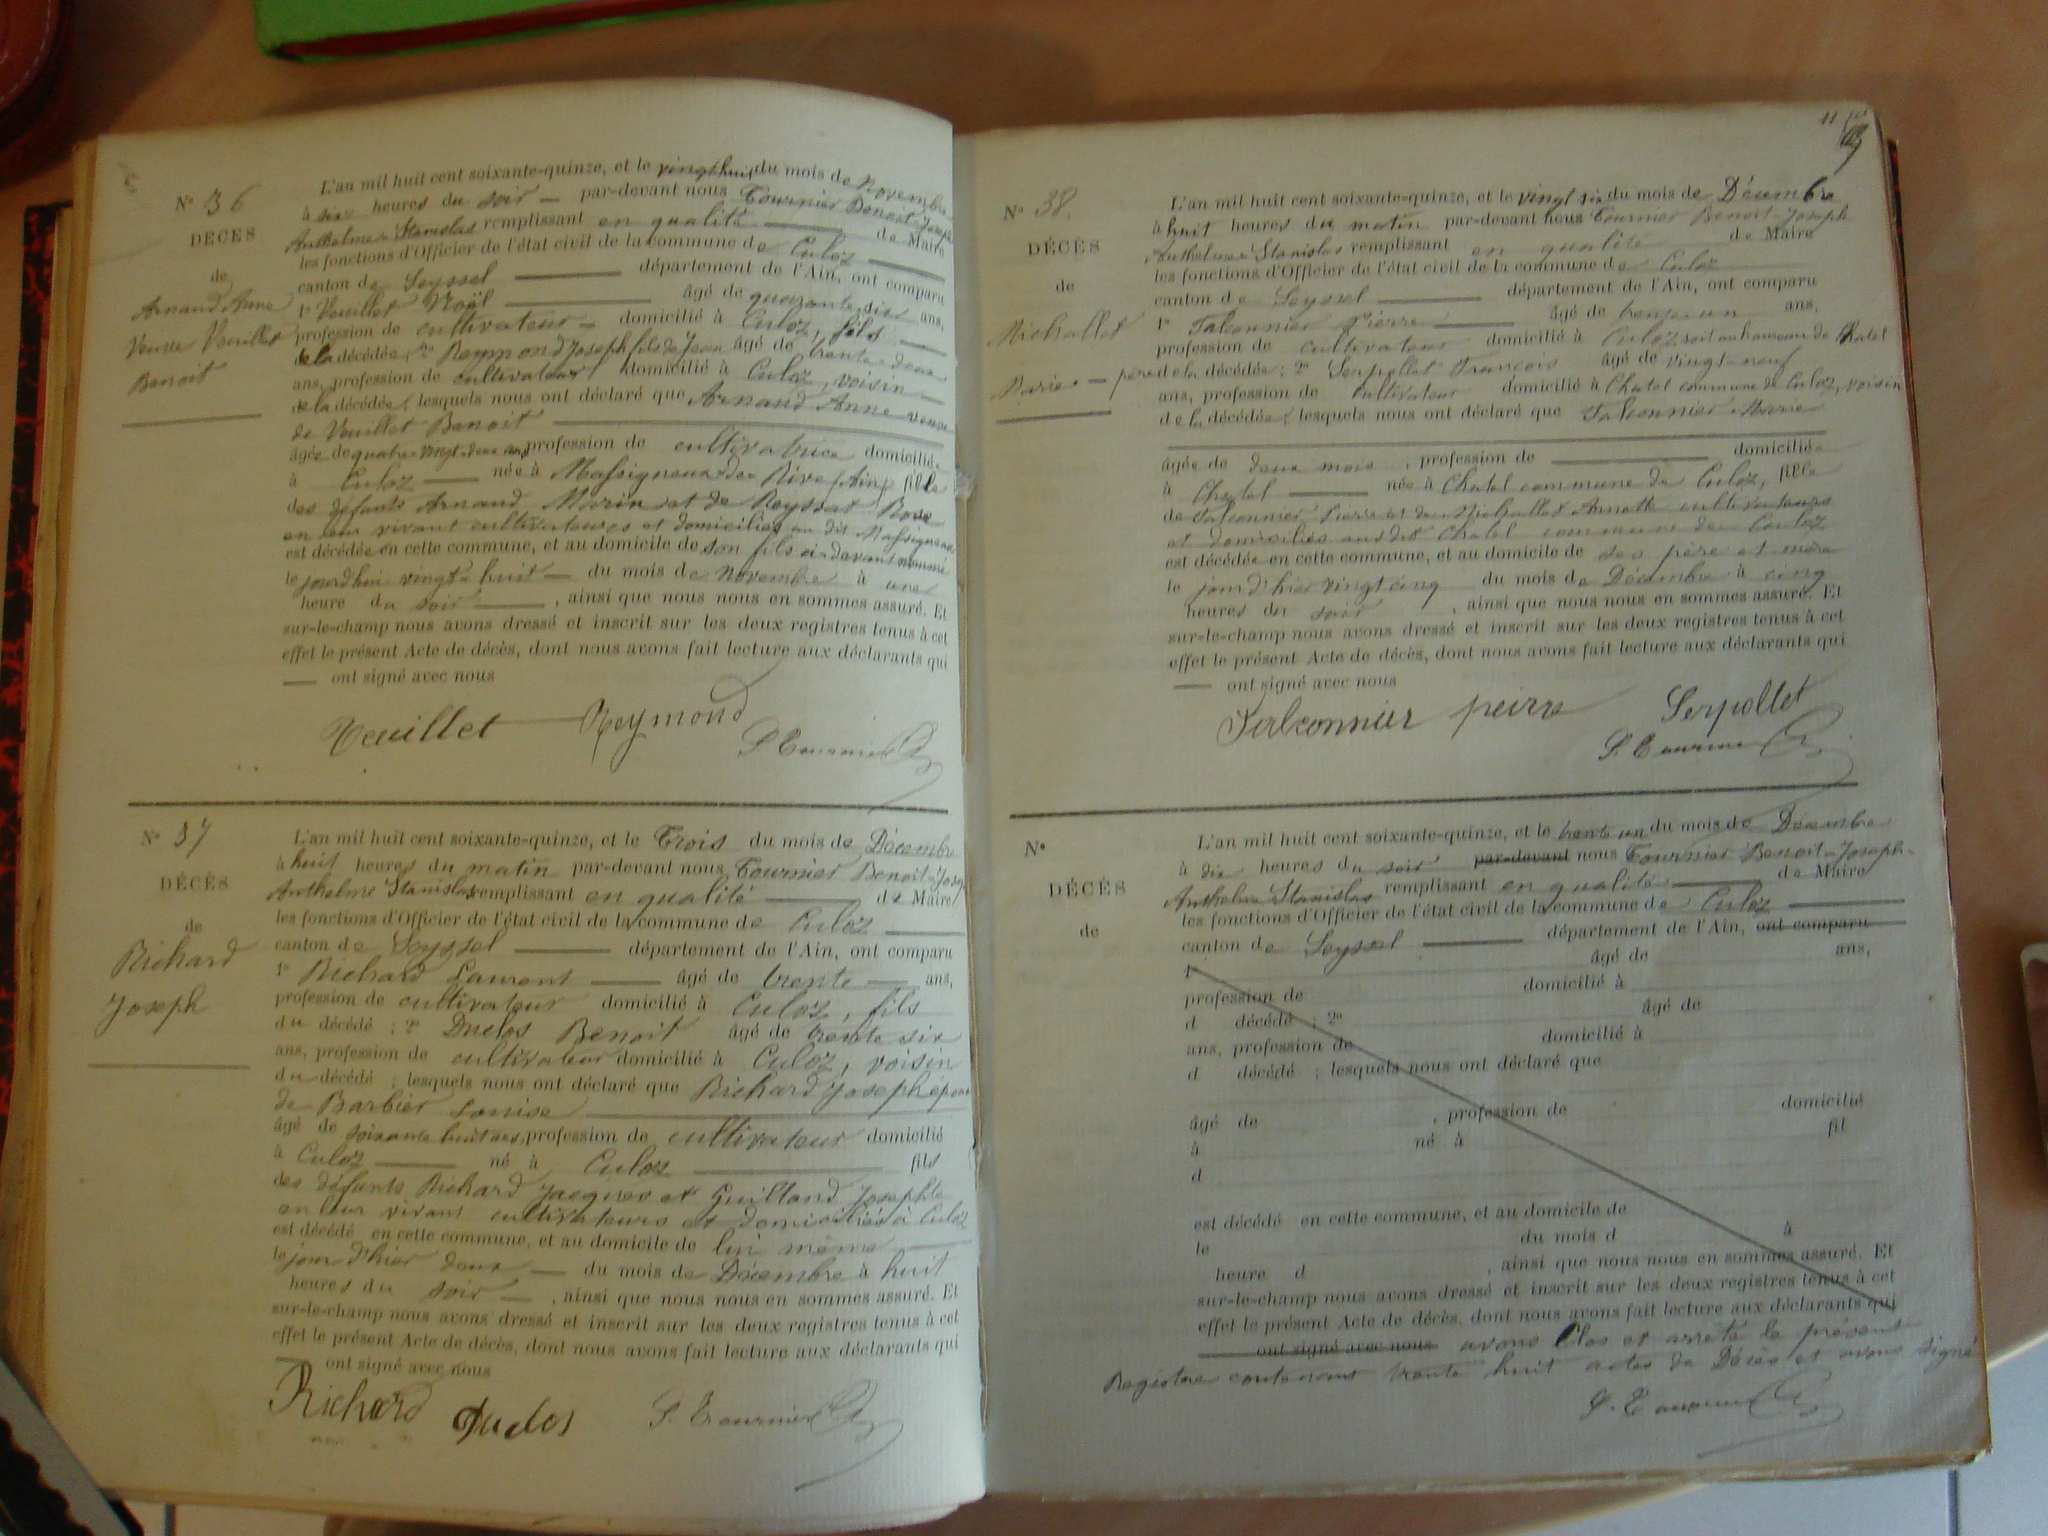 N° 36
DÉCÈS
de
Arnand Anne
Veuve Veuillet
Benoit
L'an mil huit cent soixante-quinze, et le vingt huit du mois de Novembre
à six heures du soir par-devant nous Tournier Benoit-Joseph
Anthelme-Stanislas remplissant en qualité de Maire
les fonctions d'Officier de l'état civil de la commune de Culoz
canton de Seyssel département de l'Ain, ont comparu
1° Veuillet Noël âgé de quarante six ans,
profession de cultivateur domicilié à Culoz, fils
de la décédée; 2° Reymond Joseph fils de Jean âgé de trente-deux
ans, profession de cultivateur domicilié à Culoz, voisin
de la décédée; lesquels nous ont déclaré que Arnand Anne veuve
de Veuillet Benoit
âgée de quatre-vingt-deux ans, profession de cultivatrice domiciliée
à Culoz née à Massigneux-de-Rive (Ain) fille
des défunts Arnand Marin et de Reyssat Rose
en leur vivant cultivateurs et domiciliés au dit Massigneux
est décédée en cette commune, et au domicile de son fils ci-devant nommé
le jourd'hui vingt-huit du mois de Novembre à une
heure du soir, ainsi que nous nous en sommes assuré. Et
sur-le-champ nous avons dressé et inscrit sur les deux registres tenus à cet
effet le présent Acte de décès, dont nous avons fait lecture aux déclarants qui
ont signé avec nous
Veuillet Reymond
S. Tournier
N° 37
DÉCÈS
de
Richard
Joseph
L'an mil huit cent soixante-quinze, et le Trois du mois de Décembre
à huit heures du matin par-devant nous Tournier Benoit-Joseph
Anthelme Stanislas remplissant en qualité de Maire
les fonctions d'Officier de l'état civil de la commune de Culoz
canton de Seyssel département de l'Ain, ont comparu
1° Richard Laurent âgé de trente ans,
profession de cultivateur domicilié à Culoz, fils
du décédé; 2° Duclos Benoit âgé de trente six
ans, profession de cultivateur domicilié à Culoz, voisin
du décédé; lesquels nous ont déclaré que Richard Joseph époux
de Barbier Louise
âgé de soixante huit ans, profession de cultivateur domicilié
à Culoz né à Culoz fils
des défunts Richard Jacques et Guilland Josephte
en leur vivant cultivateurs et domiciliés à Culoz
est décédé en cette commune, et au domicile de lui même
le jour d'hier deux du mois de Décembre à huit
heures du soir, ainsi que nous nous en sommes assuré. Et
sur-le-champ nous avons dressé et inscrit sur les deux registres tenus à cet
effet le présent Acte de décès, dont nous avons fait lecture aux déclarants qui
ont signé avec nous
Richard Duclos S. Tournier
11
N° 38.
DÉCÈS
de
Michallet
Marie
L'an mil huit cent soixante-quinze, et le vingt six du mois de Décembre
à huit heures du matin par-devant nous Tournier Benoit-Joseph
Anthelme-Stanislas remplissant en qualité de Maire
les fonctions d'Officier de l'état civil de la commune de Culoz
canton de Seyssel département de l'Ain, ont comparu
1° Falconnier Pierre âgé de trente-un ans,
profession de cultivateur domicilié à Culoz soit au hameau de Chatel
père de la décédée; 2° Serpollet François âgé de vingt-neuf
ans, profession de cultivateur domicilié à Chatel commune de Culoz, voisin
de la décédée; lesquels nous ont déclaré que Falconnier Marie
âgée de deux mois, profession de domiciliée
à Chatel née à Chatel commune de Culoz, fille
de Falconnier Pierre et de Michallet Annette cultivateurs
et domiciliés au dit Chatel commune de Culoz
est décédée en cette commune, et au domicile de ses père et mère
le jour d'hier vingt cinq du mois de Décembre à cinq
heures du soir, ainsi que nous nous en sommes assuré. Et
sur-le-champ nous avons dressé et inscrit sur les deux registres tenus à cet
effet le présent Acte de décès, dont nous avons fait lecture aux déclarants qui
ont signé avec nous
Falconnier peirre Serpollet
S. Tournier
N°
DÉCÈS
de
L'an mil huit cent soixante-quinze, et le trente un du mois de Décembre
à dix heures du soir par-devant nous Tournier Benoit-Joseph-
Anthelme Stanislas remplissant en qualité de Maire
les fonctions d'Officier de l'état civil de la commune de Culoz
canton de Seyssel département de l'Ain, ont comparu
1° âgé de ans,
profession de domicilié à
d décédé; 2° âgé de
ans, profession de domicilié à
d décédé; lesquels nous ont déclaré que
âgé de , profession de domicilié
à né à fil
d
est décédé en cette commune, et au domicile de
le du mois d à
heure d , ainsi que nous nous en sommes assuré. Et
sur-le-champ nous avons dressé et inscrit sur les deux registres tenus à cet
effet le présent Acte de décès, dont nous avons fait lecture aux déclarants qui
ont signé avec nous avons Clos et arrêté le présent
Registre contenant trente huit actes de Décès et avons signé
S. Tournier